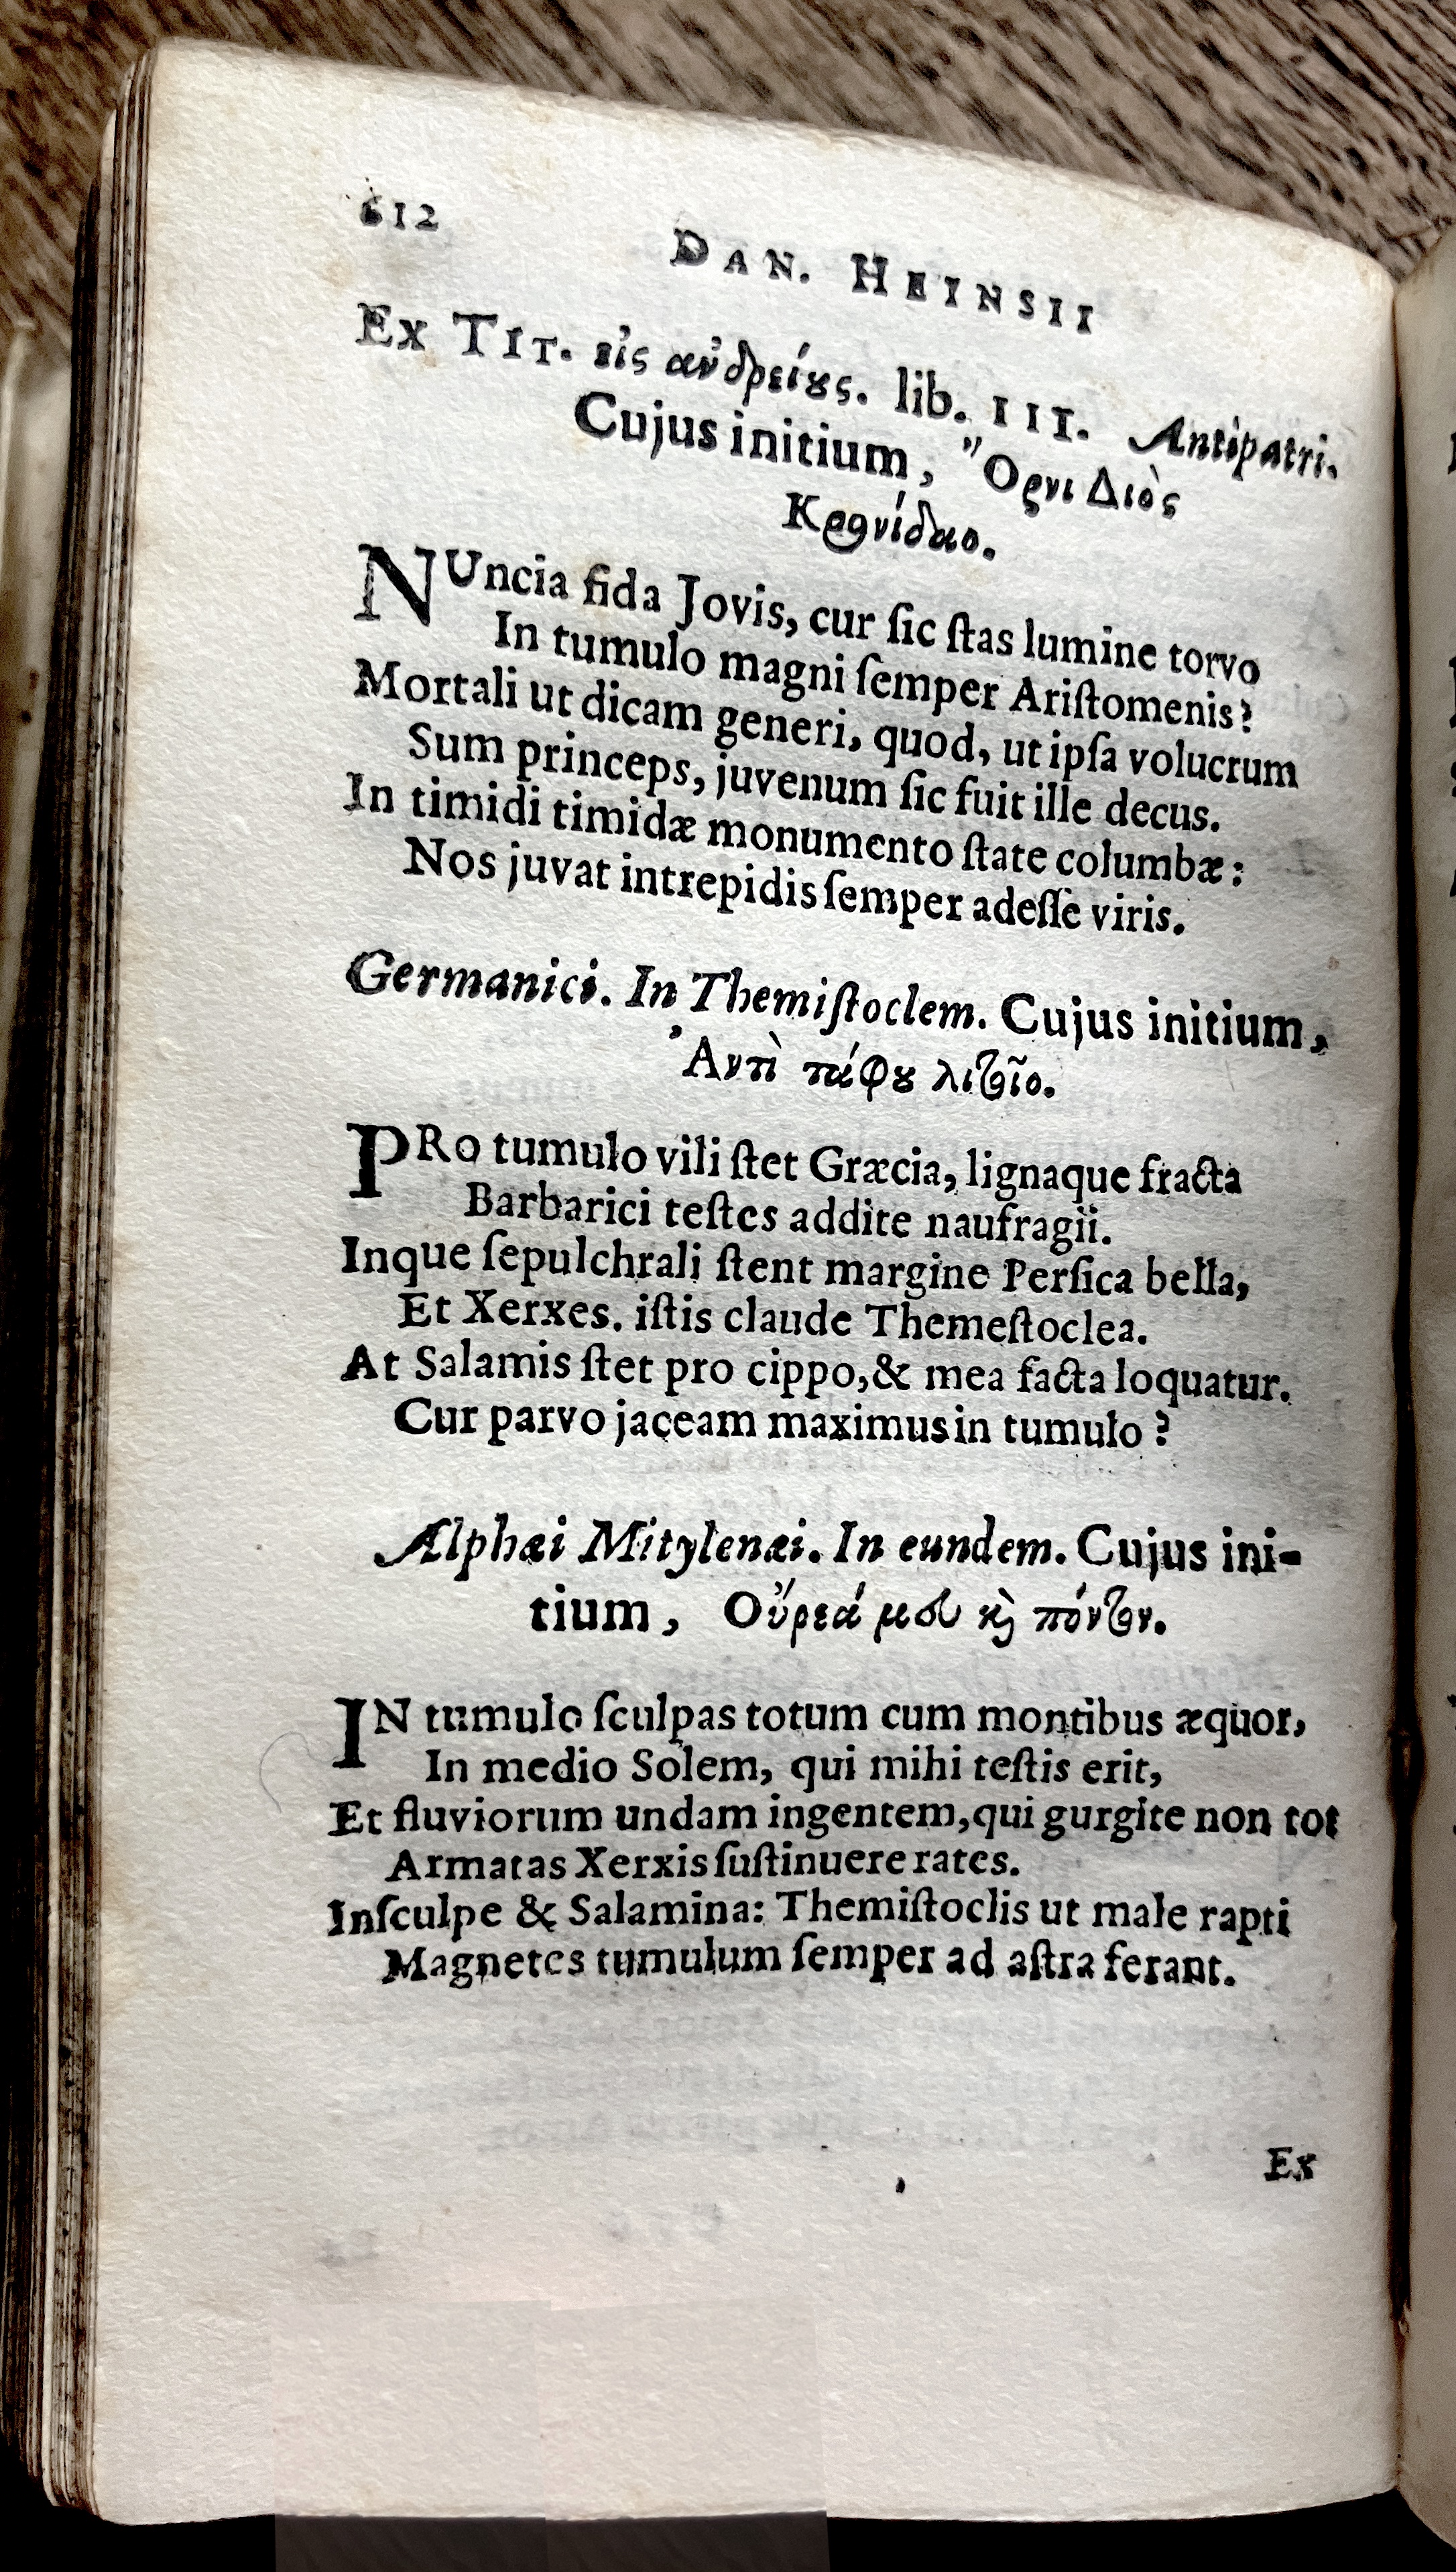 612
DAN. HEINSII
EX TIT. εἰς ἀνδρείους. lib. III. Antipatri.
Cujus initium, Ὄρνι Διὸς
Κρονίδαο.
NUncia fida Jovis, cur ſic ſtas lumine torvo
In tumulo magni ſemper Ariſtomenis?
Mortali ut dicam generi, quod, ut ipſa volucrum
Sum princeps, juvenum ſic fuit ille decus.
In timidi timidæ monumento ſtate columbæ:
Nos juvat intrepidis ſemper adeſſe viris.
Germanici. In Themiſtoclem. Cujus initium,
Ἀντὶ τάφου λιτοῖο.
PRo tumulo vili ſtet Græcia, lignaque fracta
Barbarici teſtes addite naufragii.
Inque ſepulchrali ſtent margine Perſica bella,
Et Xerxes. iſtis claude Themeſtoclea.
At Salamis ſtet pro cippo, & mea facta loquatur.
Cur parvo jaceam maximus in tumulo?
Alphæi Mitylenæi. In eundem. Cujus ini-
tium, Οὔρεά μου καὶ πόντον.
IN tumulo ſculpas totum cum montibus æquor,
In medio Solem, qui mihi teſtis erit,
Et fluviorum undam ingentem, qui gurgite non tot
Armatas Xerxis ſuſtinuere rates.
Inſculpe & Salamina: Themiſtoclis ut male rapti
Magnetes tumulum ſemper ad aſtra ferant.
Ex